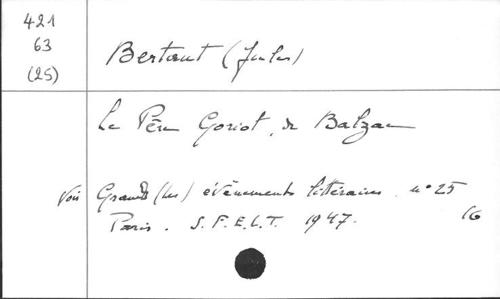 421
63
(25)
Bertaut (Jules)
Le Père Goriot, de Balzac
Voir Grands (les) évènements littéraires. n° 25
Paris. S.F.E.L.T. 1947. 16